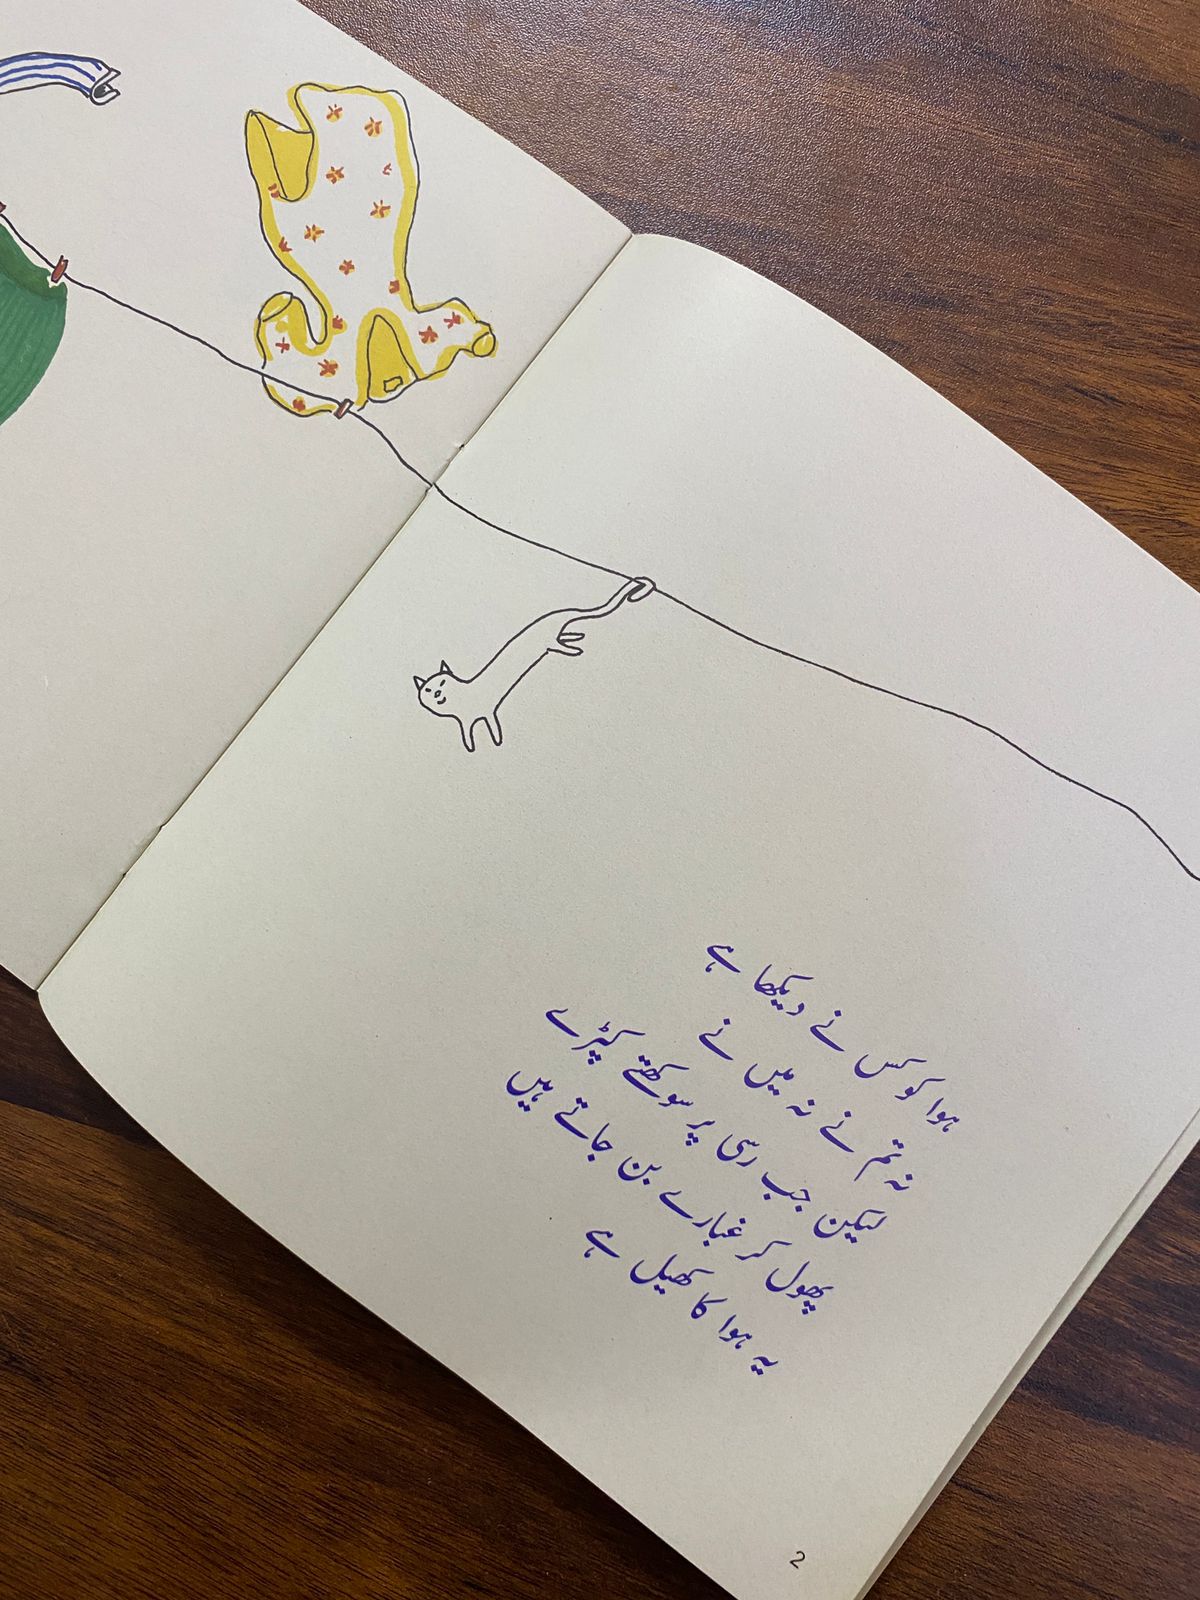 ہوا کو کس نے دیکھا ہے
نہ تم نے نہ میں نے
لیکن جب رسی پر سوکھتے کپڑے
پھول کر غبارے بن جاتے ہیں
یہ ہوا کا کھیل ہے
2